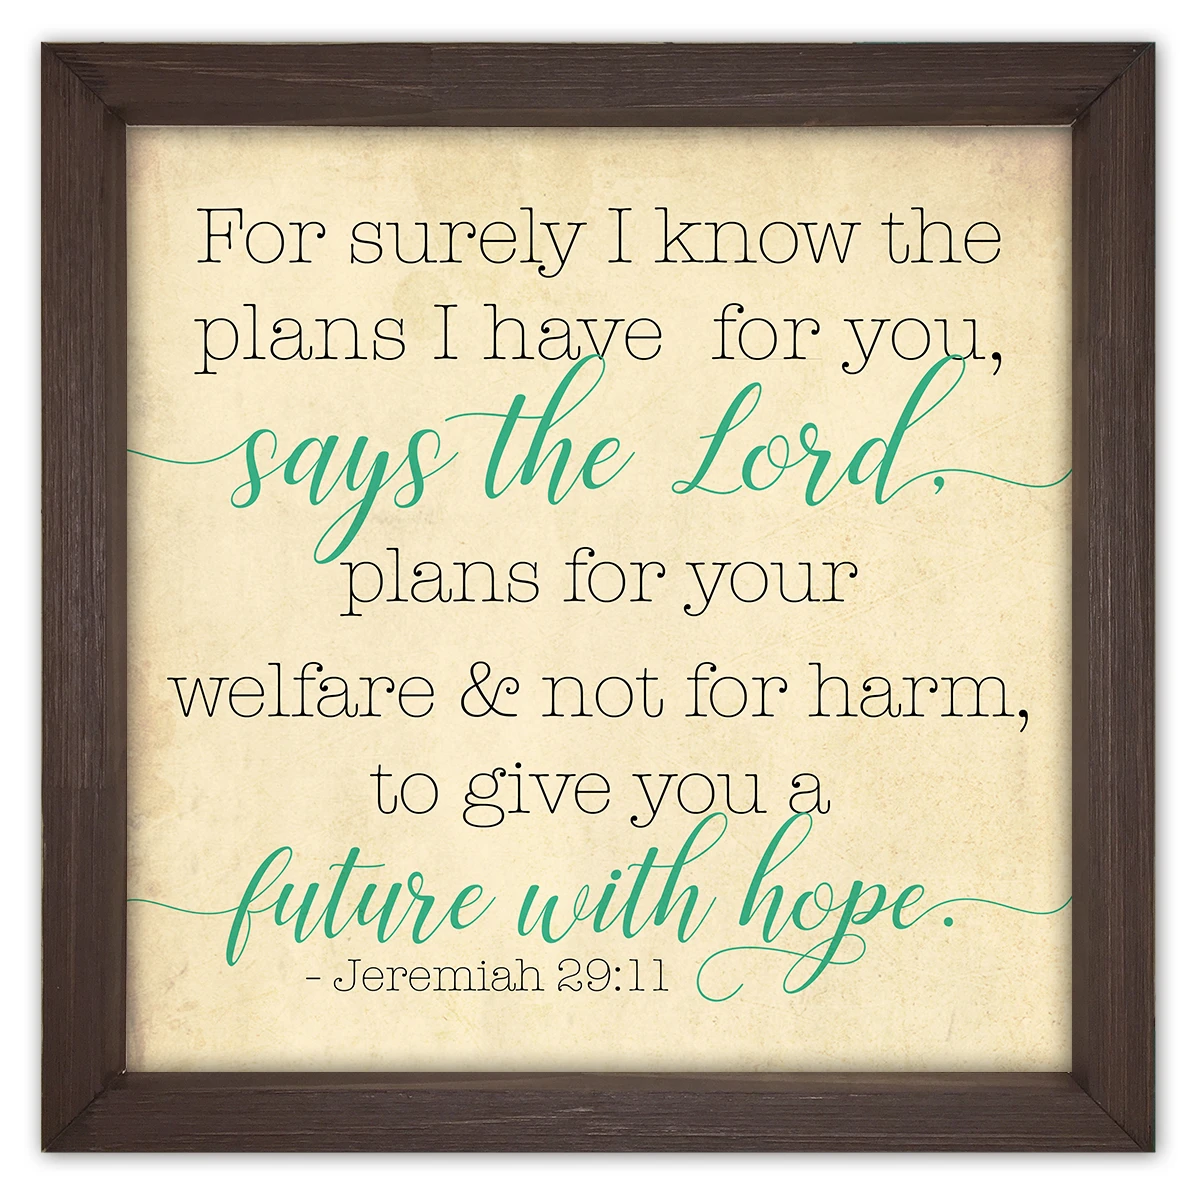 For surely I know the
plans I have for you,
says the Lord,
plans for your
welfare & not for harm,
to give you a
future with hope.
- Jeremiah 29:11